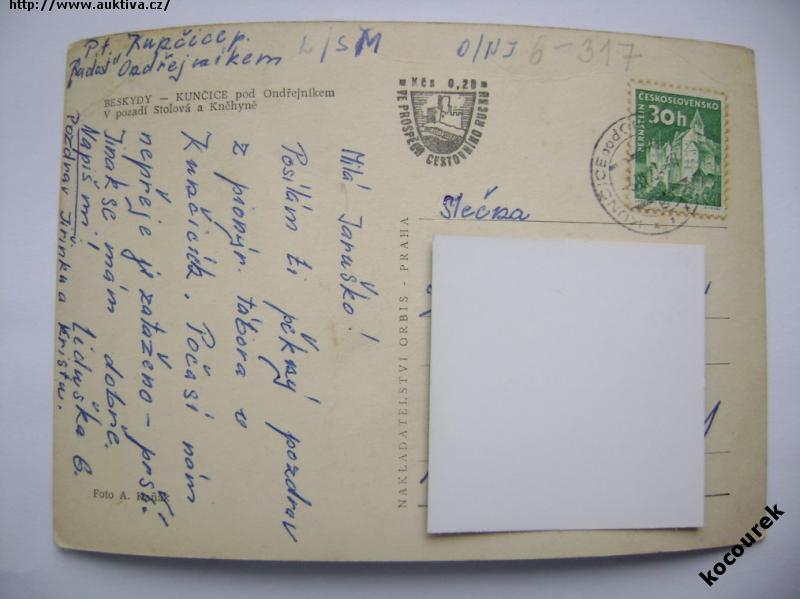 http://www.auktiva.cz/
P.t. Kunčice p.
"Radost" Ondřejníkem
L/SM
O/NJ 6-317
BESKYDY – KUNČICE pod Ondřejníkem
v pozadí Stolová a Kněhyně
Kčs 0,20
VE PROSPĚCH CESTOVNÍHO RUCHU
ČESKOSLOVENSKO
30h
PERNŠTEJN
KUNČICE POD
Slečna
Milá Jaruško!
Posílám ti pěkný pozdrav
z pionýr. tábora v
Kunčicích. Počasí nám
nepřeje je zataženo – prší.
Jinak se mám dobře.
Napiš mi! Liduška B.
Pozdrav Jirinku a Kristu.
NAKLADATELSTVÍ ORBIS - PRAHA
Foto A. Koňák
kocourek